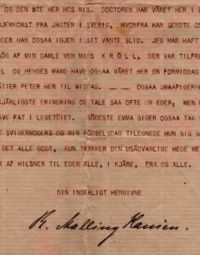 OG DEN BTE HER HOS MIS. DOCTOREN HAR VÆRET HER I
JEMKOMST FRA JAGTEN I SVERIG. HVORFRA HAN SENDTE OS
ER HAN OGSAA IGJEN I SIT VANTE SLID. JEG HAR HAFT
ØG AF MIN GAMLE VEN HANS KRØLL, DER VAR TILFR
OG HENDES MAND HAVE OGSAA VÆRET HER EN FORMIDDAG
PETER HER TIL MIDDAG. ___ OGSAA SMAAPIGERN
JÆNLIGSTE ERINDRING OG TALE SAA OFTE OM EDER, MEN
AVE FAT I LEGETØIET. SØDESTE EMMA SIGER OGSAA TAK
SVIGERMODERS OG MIN FØDSELSDAG TILEGNEDE HUN SIG
DET ALLE GODT, KUN TRYKKER DIN USÆDVANLIGE HEDE ME
AF HILSNER TIL EDER ALLE, I KJÆRE, FRA OS ALLE.
DIN INDERLIGT HENGIVNE
R. Malling Hansen.